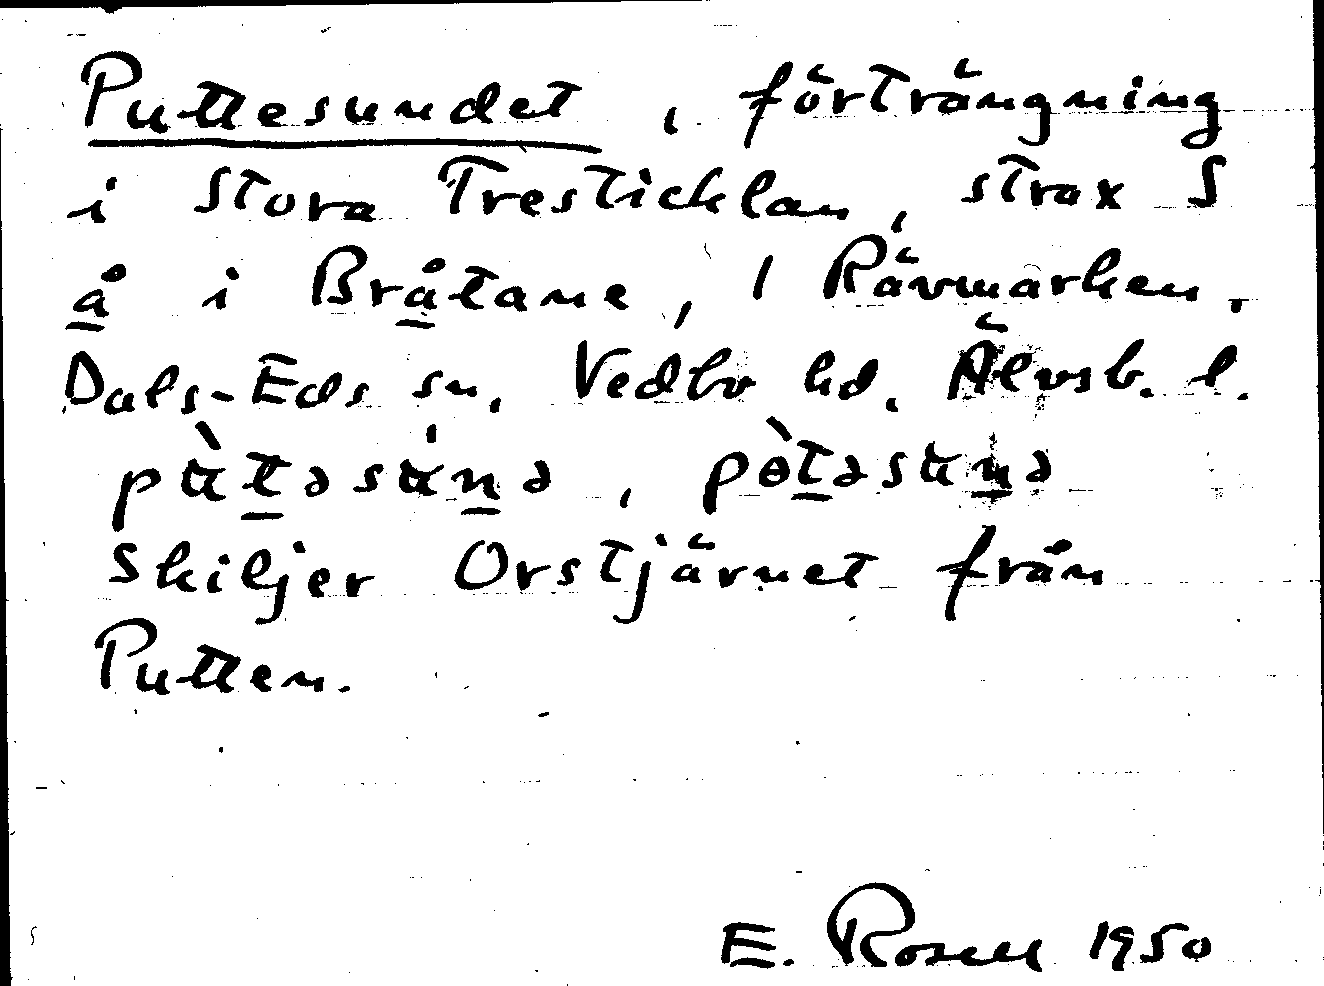 Puttesundet, förträngning
i Stora Tresticklan, strax S
å i Bråtane, 1 Rävmarken.
Dals-Eds sn, Vedbo hd. Älvsb. l.
skiljer Orstjärnet från
Putten.
E. Rosell 1950